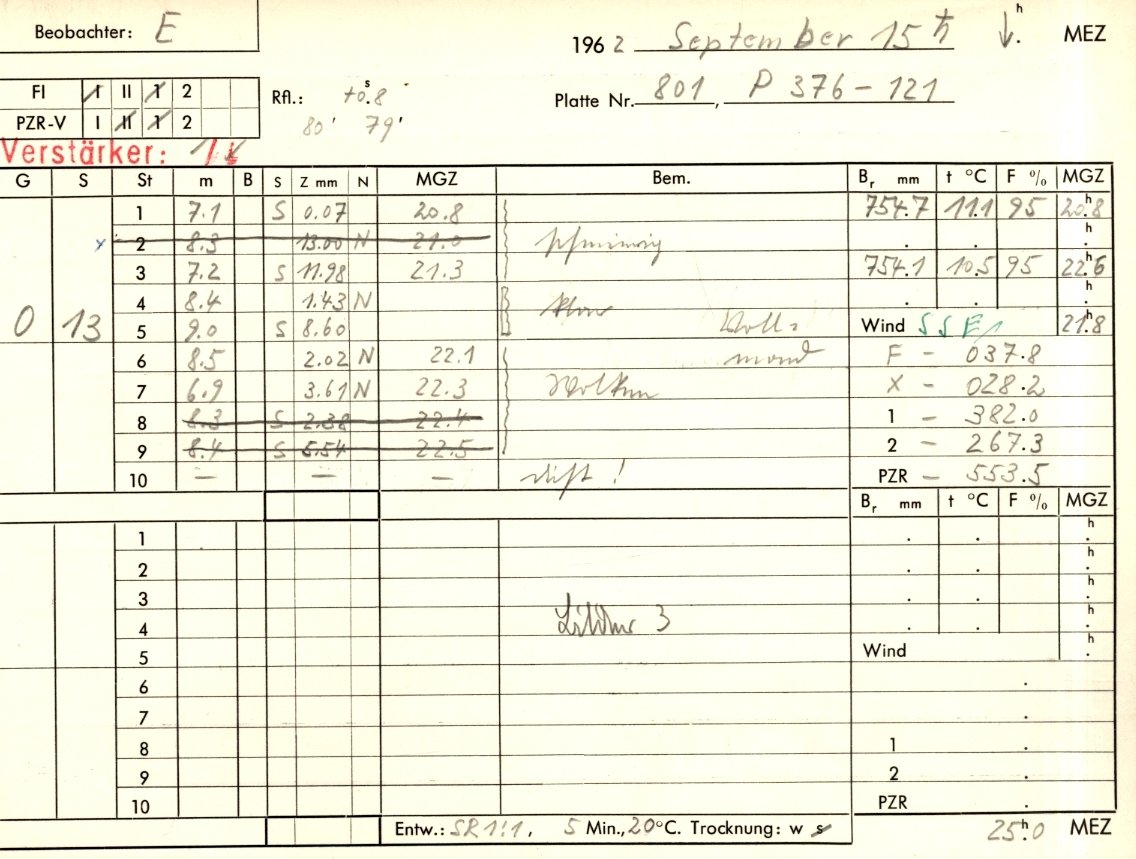 Beobachter: E
196 2 September 15 ♄ h . MEZ
FI I II 1 2
Rfl.: +0.8 s
Platte Nr. 801, P 376-121
PZR-V I II 1 2
80' 79'
Verstärker:
G S St m B S Z mm N MGZ Bem. Br mm t °C F % MGZ
1 7.1 S 0.07 20.8 754.7 11.1 95 20.8 h
2 8.3 13.00 N 21.0 . . h .
3 7.2 S 11.98 21.3 754.1 10.5 95 22.6 h
4 8.4 1.43 N klar . . h .
0 13 5 9.0 S 8.60 Voll= Wind SSE 1 21.8 h
6 8.5 2.02 N 22.1 mond F - 037.8
7 6.9 3.61 N 22.3 Wolken X - 028.2
8 8.3 S 2.38 22.4 1 - 382.0
9 8.4 S 5.54 22.5 2 - 267.3
10 — — — ! PZR - 553.5
Br mm t °C F % MGZ
1 . . h .
2 . . h .
3 . . h .
4 3 . . h .
5 Wind h .
6 .
7 .
8 1 .
9 2 .
10 PZR .
Entw.: SR 1:1, 5 Min., 20°C. Trocknung: w s 25.0 h MEZ